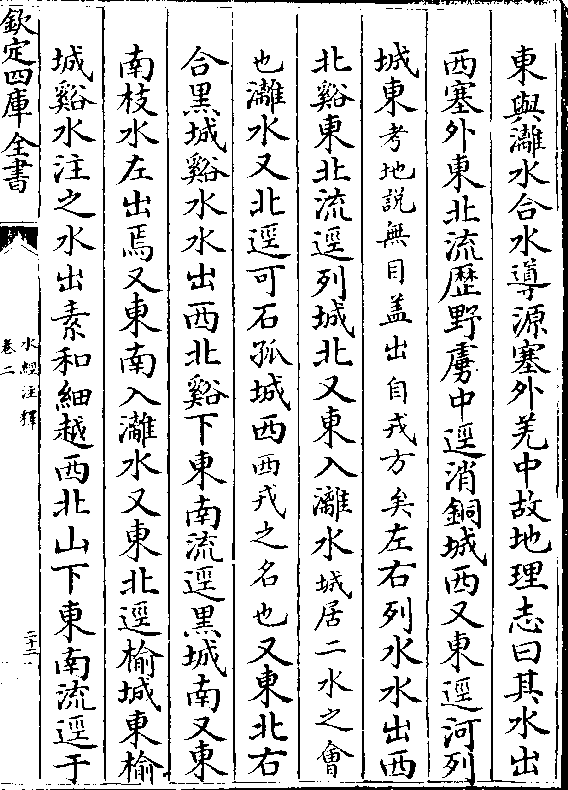 東與灕水合水導源塞外羌中故地理志曰其水出
西塞外東北流歷野虜中逕消銅城西又東逕河列
城東考地說無目盖出自戎方矣左右列水水出西
北谿東北流逕列城北又東入灕水城居二水之會
也灕水又北逕可石孤城西西戎之名也又東北右
合黒城谿水水出西北谿下東南流逕黒城南又東
南枝水左出焉又東南入灕水又東北逕榆城東榆
城谿水注之水出素和細越西北山下東南流逕于
欽定四庫全書
水經注釋
卷二
二十二